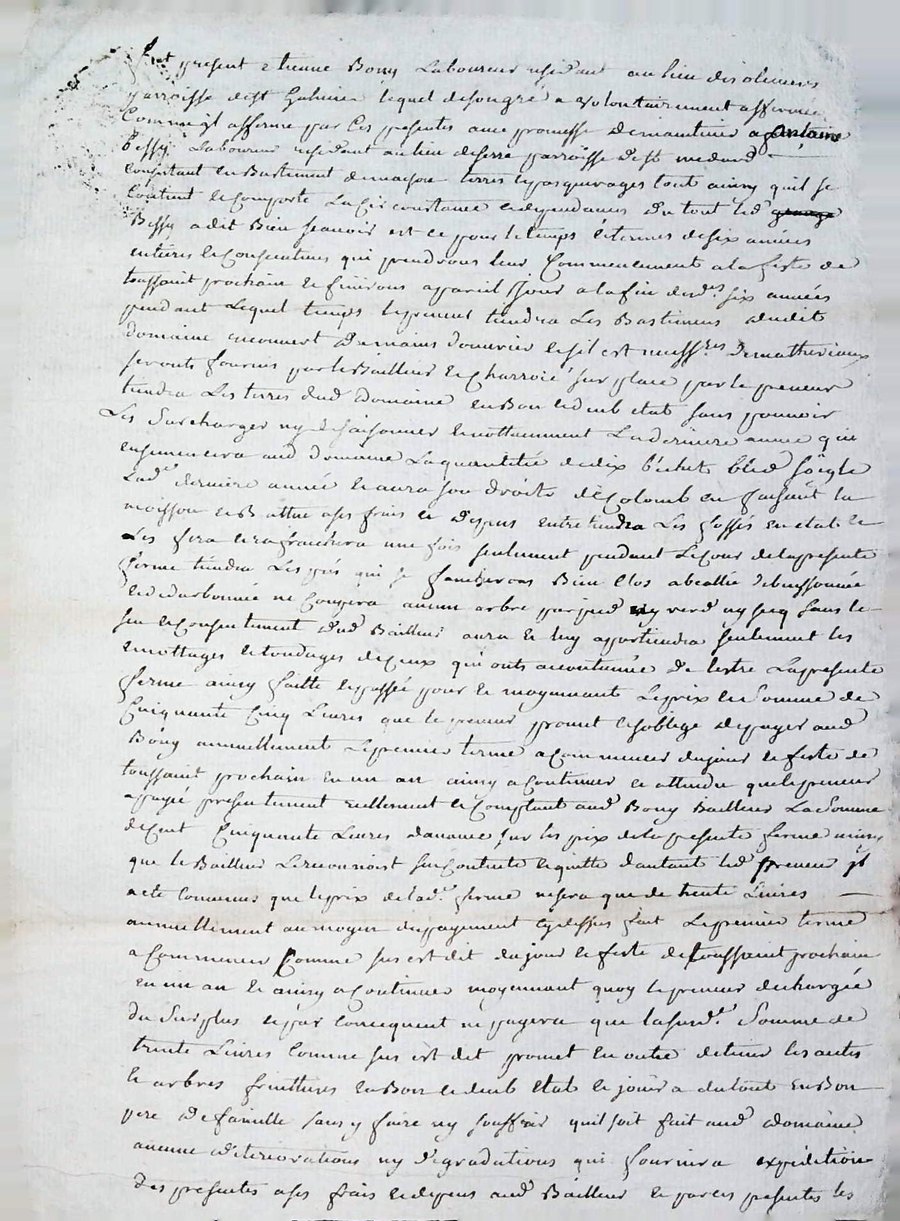 fut present etienne Bony Laboureur residant au lieu des olmeres
parroisse de st Galmier lequel desongré a volontairement affermé
Comme jl afferme par Ces presentes avec promesse de maintenir a antoine
Bessy Laboureur residant au lieu de serre parroisse de st medard
Consistant en Bastiment de maison terres et pasquerages tout ainsy quil se
Contient et Comporte La Circonstance et dependances Du tout led
Bessy a dit Bien scavoir est ce pour le temps et termes de six années
entieres et Consecutives qui prendrons leur Commencement a la feste de
toussaint prochain et finirons a pareil jour a la fin desd.es six années
pendant Lequel temps le preneur tiendra Les Bastimens dudit
domaine a couvert De mains d'ouvrier et sil est necess.res De matheriaux
seronts fournis par le Bailleur et Charroié sur place par le preneur
tiendra Les terres dud domaine en Bon et deub etat sans pouvoir
Les Surcharger ny desaisonner et nottamment La derniere année qui
ensemencera aud domaine La quantitée de dix bichets bled soigle
Lad.e derniere année et aura son droits de Colomb en faisant la
moisson et Battre a ses frais et Depens entretiendra Les fossés en etat et
Les fera et rafraichira une fois seulement pendant Le cour de la presente
ferme tiendra Les prés qui se faucherons Bien Clos abeallée debuissonnée
et ne Coupera aucun arbre par pied ny verd ny secq sans le
seu et Consentement dud Bailleur aura et luy apartiendra seulement les
emottages et tondages de ceux qui onts accoutumée De l'estre La presente
ferme ainsy faitte et passée pour et moyennante Le prix et Somme de
Cinquante Cinq Livres que le preneur promet et soblige de payer aud
Bony annuellement Le premier terme a Commencer du jour et feste de
toussaint prochain en un an ainsy a Continuer et attendu que le preneur
a payé presentement reellement et Comptant aud Bony Bailleur La Somme
de Cent Cinquante Livres davance sur les prix de la presente ferme ainsy
que le Bailleur Le reconnoist sen Contente et quitte d'autants led preneur jl
a ete Convenus que le prix de lad.e ferme ne sera que de trente Livres
annuellement au moyen du payement cydessus fait Le premier terme
a Commencer Comme sus est dit du jour et feste de toussaint prochain
en un an et ainsy a Continuer moyennant quoy le preneur dechargée
du Surplus et par Consequent ne payera que la susd.e Somme de
trente Livres Comme sus est dit promet en outre de tenir les
et arbres fruittieres en Bon et deub etat et jouira du tout en Bon
pere De famille sans y faire ny souffrir quil soit fait aud domaine
aucune deteriorations ny degradations qui fournira expedition
des presentes a ses frais et depens aud Bailleur et par ces presentes les